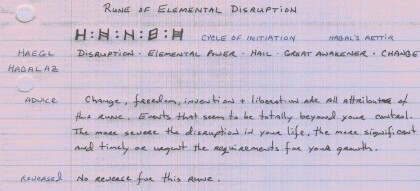 RUNE OF ELEMENTAL DISRUPTION
CYCLE OF INITIATION HAGAL'S AETTIR
HAEGL DISRUPTION · ELEMENTAL POWER · HAIL · GREAT AWAKENER · CHANGE
HAGALAZ
ADVICE Change, freedom, invention + liberation are all attributes of
this rune. Events that seem to be totally beyond your control.
The more severe the disruption in your life, the more significant
and timely or urgent the requirements for your growth.
REVERSED No reverse for this rune.